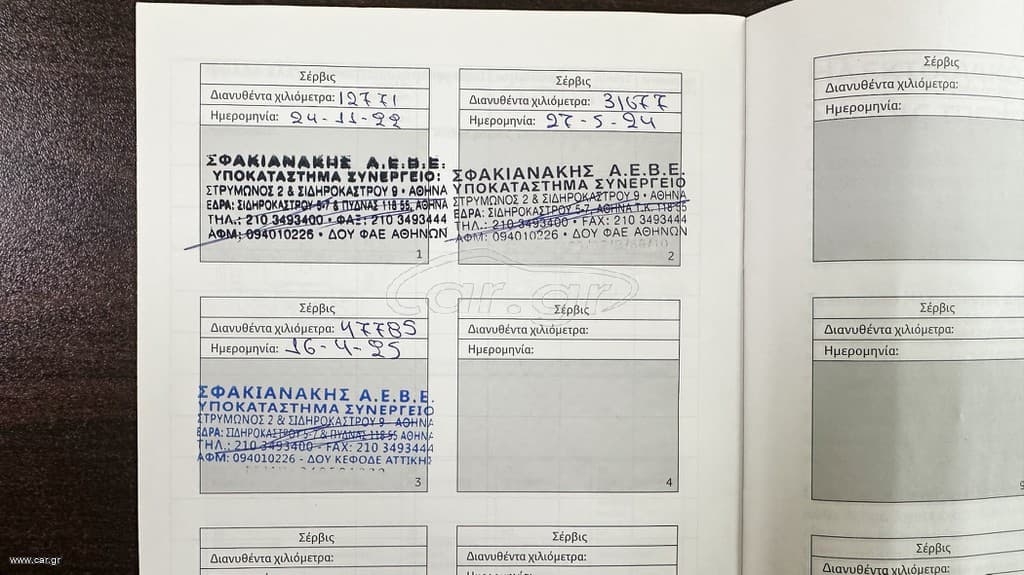 Σέρβις
Διανυθέντα χιλιόμετρα: 12771
Ημερομηνία: 24-11-22
ΣΦΑΚΙΑΝΑΚΗΣ Α.Ε.Β.Ε.
ΥΠΟΚΑΤΑΣΤΗΜΑ ΣΥΝΕΡΓΕΙΟ:
ΣΤΡΥΜΩΝΟΣ 2 & ΣΙΔΗΡΟΚΑΣΤΡΟΥ 9 • ΑΘΗΝΑ
ΕΔΡΑ: ΣΙΔΗΡΟΚΑΣΤΡΟΥ 5-7 & ΠΥΔΝΑΣ 118 55, ΑΘΗΝΑ
ΤΗΛ.: 210 3493400 • ΦΑΞ: 210 3493444
ΑΦΜ: 094010226 • ΔΟΥ ΦΑΕ ΑΘΗΝΩΝ
1
Σέρβις
Διανυθέντα χιλιόμετρα: 31677
Ημερομηνία: 27-5-24
ΣΦΑΚΙΑΝΑΚΗΣ Α.Ε.Β.Ε.
ΥΠΟΚΑΤΑΣΤΗΜΑ ΣΥΝΕΡΓΕΙΟ
ΣΤΡΥΜΩΝΟΣ 2 & ΣΙΔΗΡΟΚΑΣΤΡΟΥ 9 • ΑΘΗΝΑ
ΕΔΡΑ: ΣΙΔΗΡΟΚΑΣΤΡΟΥ 5-7, ΑΘΗΝΑ Τ.Κ. 118 55
ΤΗΛ.: 210 3493400 • FAX: 210 3493444
ΑΦΜ: 094010226 • ΔΟΥ ΦΑΕ ΑΘΗΝΩΝ
2
Σέρβις
Διανυθέντα χιλιόμετρα: 47785
Ημερομηνία: 16-4-25
ΣΦΑΚΙΑΝΑΚΗΣ Α.Ε.Β.Ε.
ΥΠΟΚΑΤΑΣΤΗΜΑ ΣΥΝΕΡΓΕΙΟ
ΣΤΡΥΜΩΝΟΣ 2 & ΣΙΔΗΡΟΚΑΣΤΡΟΥ 9 ΑΘΗΝΑ
ΕΔΡΑ: ΣΙΔΗΡΟΚΑΣΤΡΟΥ 5-7 & ΠΥΔΝΑΣ 118 55 ΑΘΗΝΑ
ΤΗΛ.: 210 3493400 - FAX: 210 3493444
ΑΦΜ: 094010226 - ΔΟΥ ΚΕΦΟΔΕ ΑΤΤΙΚΗΣ
3
Σέρβις
Διανυθέντα χιλιόμετρα:
Ημερομηνία:
4
Σέρβις
Διανυθέντα χιλιόμετρα:
Σέρβις
Διανυθέντα χιλιόμετρα:
Ημερομηνία:
Σέρβις
Διανυθέντα χιλιόμετρα:
Ημερομηνία:
Σέρβις
Διανυθέντα χιλιόμετρα:
Ημερομηνία:
9
Σέρβις
Διανυθέντα χιλιόμετρα:
car.gr
www.car.gr